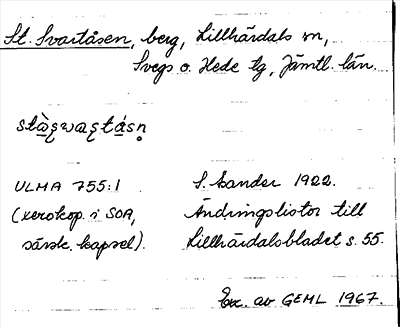 St. Svartåsen, berg, Lillhärdals sn,
Svegs o. Hede tg, Jämtl. län.
ULMA 755:1
(xerokop. i SOA,
särsk. kapsel).
S. Lander 1922.
Ändringslistor till
Lillhärdalsbladet s. 55.
Exc. av GEML 1967.